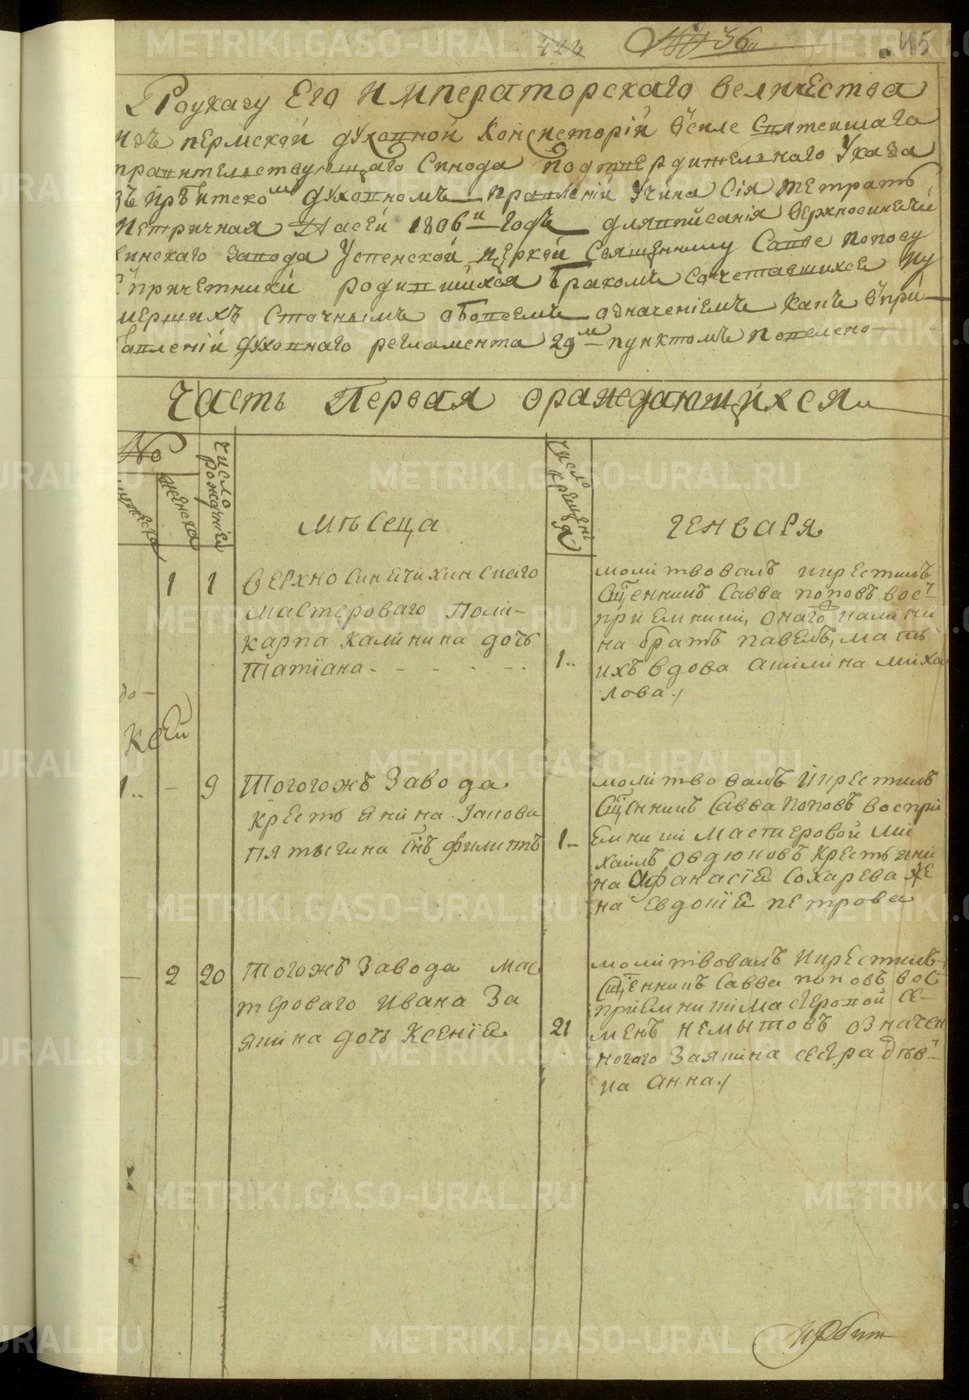 424 № 36 45
По указу Его Императорскаго величества
изъ пермской духовной Консисторiй всиле Святеишаго
правительствующаго Синода подтвердительнаго Указа
въ Ирбитскомъ духовномъ правленiй Учина Сiя тетрать
Метричная насей 1806й годъ длявписанiя верхносинечи
хинскаго завода Успенской церкви Священнику Савве попову
Спричетники родившихся бракомъ сочетавшихся и у
мершихъ Сточнымъ обовсемъ означенiемъ какъ въ при
бавленiй духовнаго регламента 29мъ пунктомъ повелено
Часть Первая ораждающихся
№
женска
число рожденiя
Мѣсеца
число крещенi
Генваря
1 1 верхносинечихинскаго
мастероваго Поли-
карпа калинина дочь
Татiана
1
молитвовалъ икрестилъ
Сщенникъ Савва поповъ вос
приемники, онаго калини
на братъ павелъ, мать
ихъ вдова Акилина миха
лова
1 - 9 Тогогожъ Завода
крестьянина Iакова
пятыгина Снъ филиппъ
1
молитвовалъ Икрестилъ
Сщенникъ Савва поповъ воспри
емники мастеровой ми
хаилъ овдюковъ крестьяни
на Афанасiя Сохарева же
на евдокiя петрова
- 2 20 тогожъ Завода мас
тероваго ивана За
якина дочь ксенiя
21
молитвовалъ Икрестилъ
Сщенникъ Савва поповъ вос
приемники мастеровой се-
менъ немытовъ означен
ногаго Заякина сестра дѣви
ца анна
Ирбит